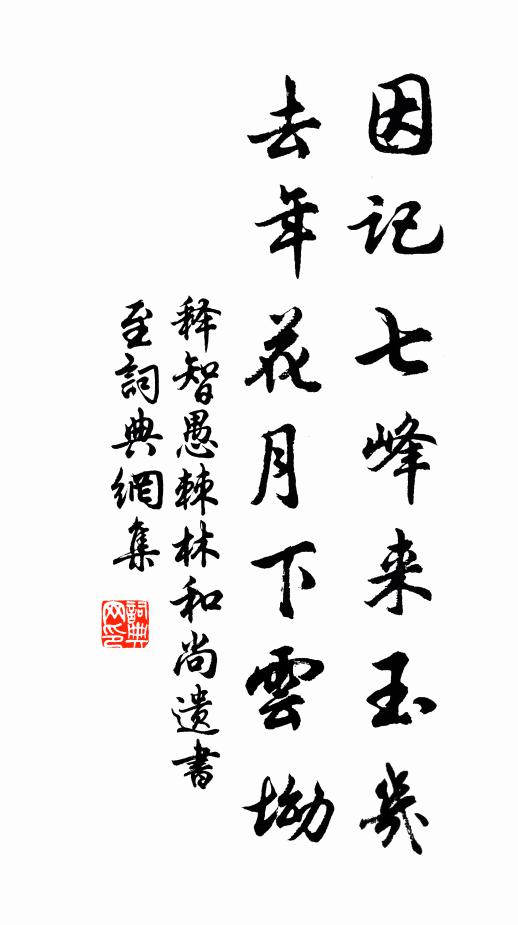 因记七峰来玉几
去年花月下雲坳
释智愚棘林和尚遗書
至詞典網集
詞典网印